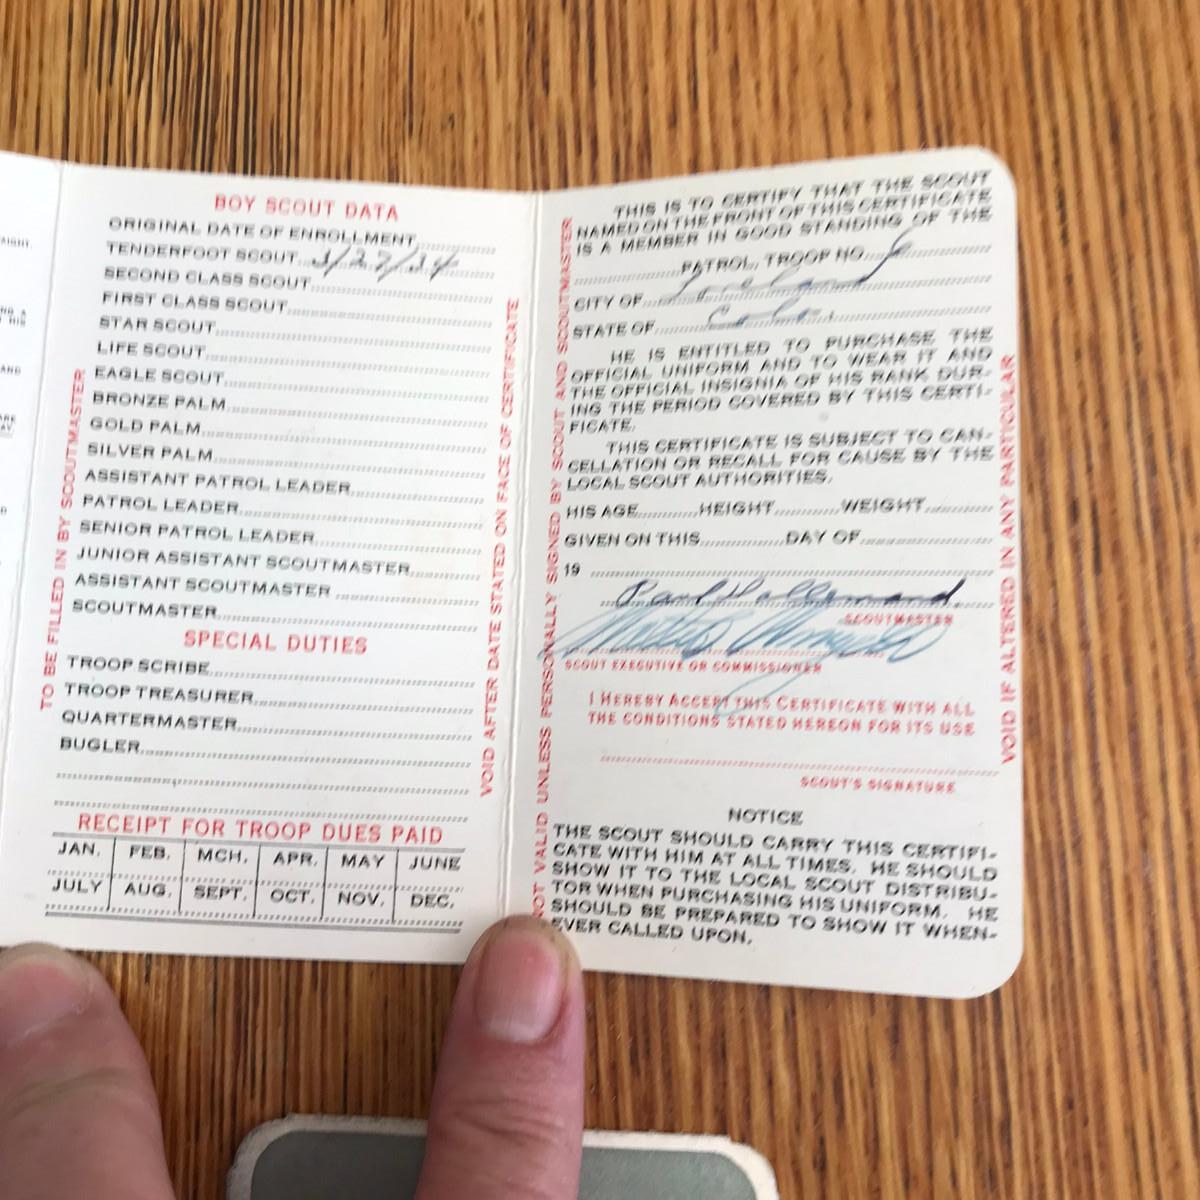 BOY SCOUT DATA
ORIGINAL DATE OF ENROLLMENT
TENDERFOOT SCOUT
SECOND CLASS SCOUT
FIRST CLASS SCOUT
STAR SCOUT
LIFE SCOUT
EAGLE SCOUT
BRONZE PALM
GOLD PALM
SILVER PALM
ASSISTANT PATROL LEADER
PATROL LEADER
SENIOR PATROL LEADER
JUNIOR ASSISTANT SCOUTMASTER
ASSISTANT SCOUTMASTER
SCOUTMASTER
SPECIAL DUTIES
TROOP SCRIBE
TROOP TREASURER
QUARTERMASTER
BUGLER
RECEIPT FOR TROOP DUES PAID
JAN. FEB. MCH. APR. MAY JUNE
JULY AUG. SEPT. OCT. NOV. DEC.
TO BE FILLED IN BY SCOUTMASTER
VOID AFTER DATE STATED ON FACE OF CERTIFICATE
NOT VALID UNLESS PERSONALLY SIGNED BY SCOUT AND SCOUTMASTER
THIS IS TO CERTIFY THAT THE SCOUT
NAMED ON THE FRONT OF THIS CERTIFICATE
IS A MEMBER IN GOOD STANDING OF THE
PATROL, TROOP NO. 6
CITY OF
STATE OF Colo.
HE IS ENTITLED TO PURCHASE THE
OFFICIAL UNIFORM AND TO WEAR IT AND
THE OFFICIAL INSIGNIA OF HIS RANK DUR-
ING THE PERIOD COVERED BY THIS CERTI-
FICATE.
THIS CERTIFICATE IS SUBJECT TO CAN-
CELLATION OR RECALL FOR CAUSE BY THE
LOCAL SCOUT AUTHORITIES.
HIS AGE HEIGHT WEIGHT
GIVEN ON THIS DAY OF
19
Paul
SCOUTMASTER
SCOUT EXECUTIVE OR COMMISSIONER
I HEREBY ACCEPT THIS CERTIFICATE WITH ALL
THE CONDITIONS STATED HEREON FOR ITS USE
SCOUT'S SIGNATURE
NOTICE
THE SCOUT SHOULD CARRY THIS CERTIFI-
CATE WITH HIM AT ALL TIMES. HE SHOULD
SHOW IT TO THE LOCAL SCOUT DISTRIBU-
TOR WHEN PURCHASING HIS UNIFORM. HE
SHOULD BE PREPARED TO SHOW IT WHEN-
EVER CALLED UPON.
VOID IF ALTERED IN ANY PARTICULAR